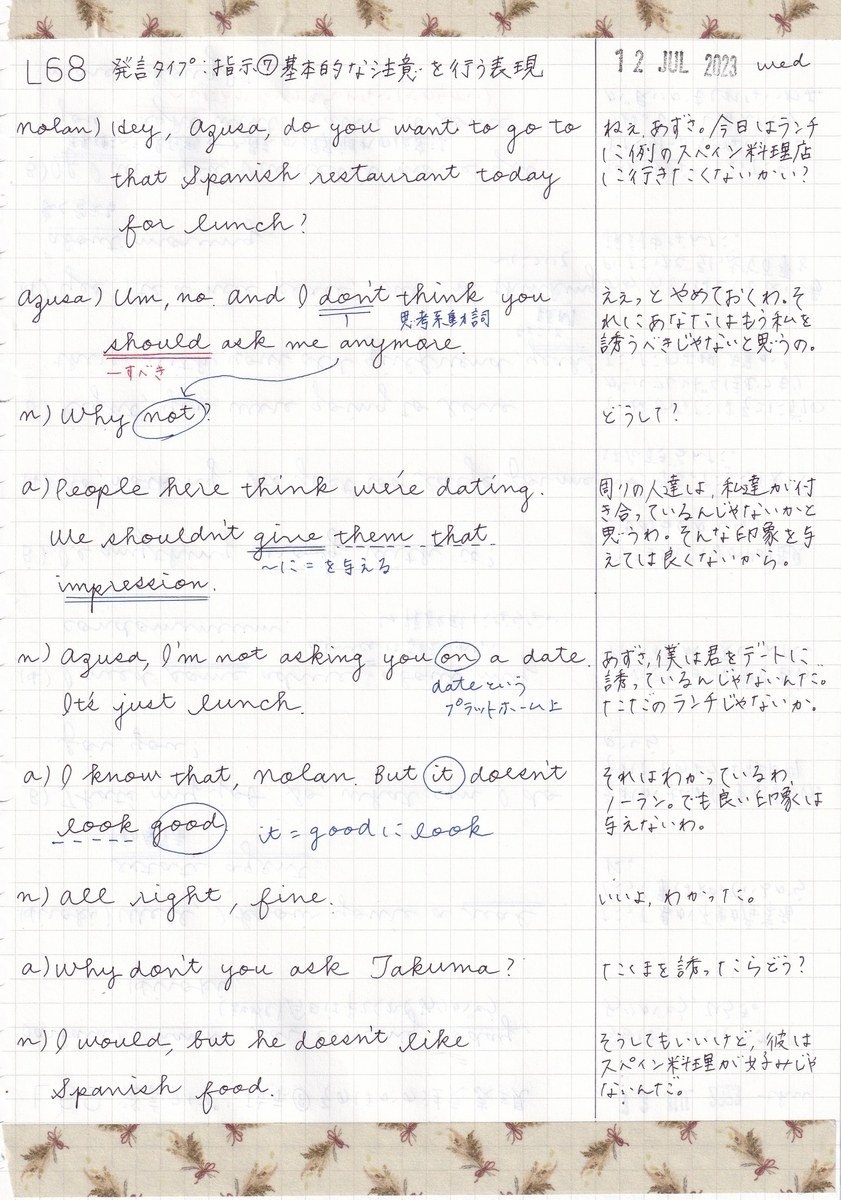 L68 発言タイプ:指示⑦基本的な注意を行う表現
12 JUL 2023 wed
nolan) Hey, Azusa, do you want to go to
that Spanish restaurant today
for lunch?
ねえ、あずさ。今日はランチ
に例のスペイン料理店
に行きたくないかい?
Azusa) Um, no. And I don't think you
思考系動詞
should ask me anymore.
ーすべき
ええっと やめておくわ。そ
れにあなたはもう私を
誘うべきじゃないと思うの。
n) Why not?
どうして?
a) People here think we're dating.
We shouldn't give them that
〜に = を与える
impression.
周りの人達は、私達が付
き合っているんじゃないかと
思うわ。そんな印象を与
えては良くないから。
n) Azusa, I'm not asking you on a date.
dateという
プラットホーム上
It's just lunch.
あずさ、僕は君をデートに
誘っているんじゃないんだ。
ただのランチじゃないか。
a) I know that, nolan. But it doesn't
look good it = goodにlook
それはわかっているわ、
ノーラン。でも良い印象は
与えないわ。
n) all right, fine.
いいよ、わかった。
a) Why don't you ask Takuma?
たくまを誘ったらどう?
n) I would, but he doesn't like
Spanish food.
そうしてもいいけど、彼は
スペイン料理が好みじゃ
ないんだ。